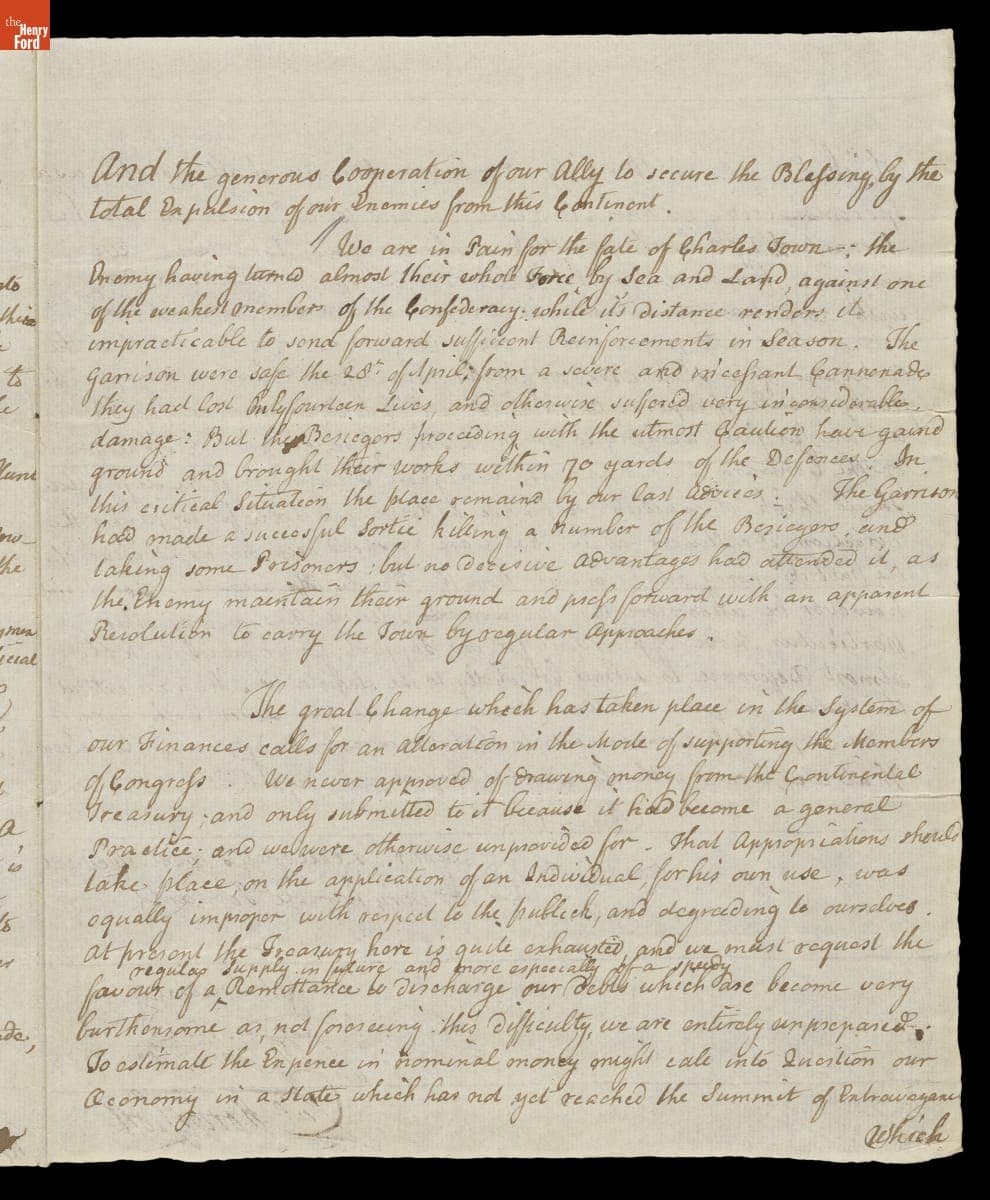 the
Henry
Ford
And the generous Cooperation of our Ally to secure the Blessing, by the
total Expulsion of our Enemies from this Continent.
We are in Pain for the fate of Charles Town –: the
Enemy having turned almost their whole Force by Sea and Land, against one
of the weakest members of the Confederacy; while it's distance renders it
impracticable to send forward sufficient Reinforcements in Season. The
Garrison were safe the 28th of April; from a severe and incessant Cannonade
they had lost only fourteen Lives, and otherwise suffered very inconsiderable
damage: But the Besiegers proceeding with the utmost Caution have gaind
ground and brought their works within 70 yards of the Defences. In
this critical Situation the place remaind by our last advices. The Garrison
had made a successful Sortie killing a number of the Besiegers, and
taking some Prisoners: but no decisive advantages had attended it, as
the Enemy maintain their ground and press forward with an apparent
Resolution to carry the Town by regular Approaches.
The great Change which has taken place in the System of
our Finances calls for an alteration in the Mode of supporting the Members
of Congress. We never approved of drawing money from the Continental
Treasury; and only submitted to it because it had become a general
Practice; and we were otherwise unprovided for. That Appropriations should
take place, on the application of an Individual, for his own use, was
equally improper with respect to the publick, and degrading to ourselves.
At present the Treasury here is quite exhausted, and we must request the
regular Supply in future and more especially of a speedy
favour of a Remittance to discharge our Debts which are become very
burthensome as, not foreseeing this difficulty, we are entirely unprepared.
To estimate the Expence in nominal money might call into Question our
Oeconomy in a State which has not yet reached the Summit of Extravagance
Which